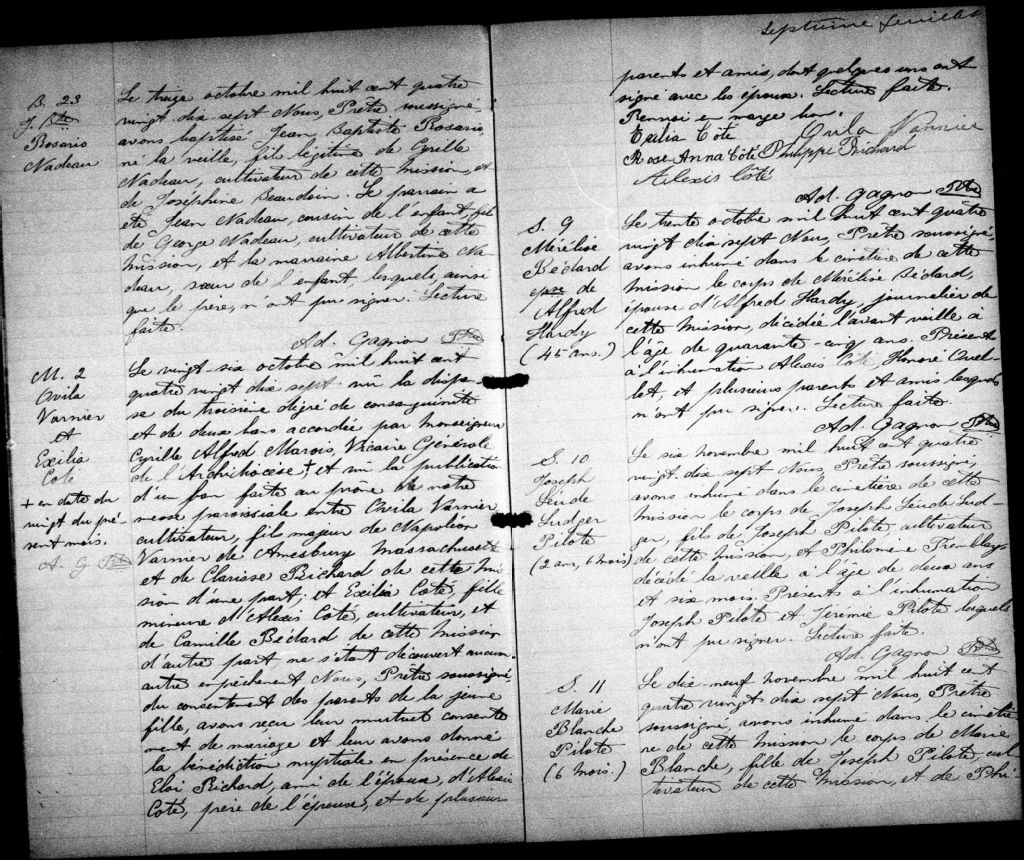 B. 23
J. Bte
Rosario
Nadeau
Le treize octobre mil huit cent quatre
vingt dix sept Nous, Prêtre soussigné
avons baptisé Jean Baptiste Rosario
né la veille, fils légitime de Cyrille
Nadeau, cultivateur de cette mission, et
de Joséphine Beaudoin. Le parrain a
été Jean Nadeau, cousin de l'enfant, fils
de George Nadeau, cultivateur de cette
mission, et la marraine Albertine Na-
deau, sœur de l'enfant, lesquels, ainsi
que le père, n'ont pu signer. Lecture
faite.
Ad. Gagnon Ptre
M. 2
Ovila
Varnier
et
Exilia
Cote
+ en date du
vingt du pré-
sent mois.
A. G. Ptre
Le vingt-six octobre mil huit cent
quatre vingt dix sept vu la dispen-
se du troisième dégré de consanguinité
et de deux bans accordée par Monseigneur
Cyrille Alfred Marois, Vicaire Général
de l'Archidiocèse +, et vu la publication
d'un ban faite au prône de notre
messe paroissiale entre Ovila Varnier,
cultivateur, fils majeur de Napoléon
Varnier de Amesbury Massachusett
et de Clarisse Richard de cette mis-
sion d'une part, et Exilia Coté, fille
mineure d'Alexis Coté, cultivateur, et
de Camille Bédard de cette mission
d'autre part ne s'étant découvert aucun
autre empêchement Nous, Prêtre soussigné,
du consentement des parents de la jeune
fille, avons reçu leur mutuel consente
ment de mariage et leur avons donné
la bénédiction nuptiale en présence de
Eloi Richard, ami de l'époux, d'Alexis
Coté, père de l'épouse, et de plusieurs
Septième feuillet
parents et amis, dont quelques uns ont
signé avec les époux. Lecture faite.
Renvoi en marge bon.
Exilia Côté Ovila Varnier
Rose-Anna Côté Philippe Richard
Alexis Côté
Ad. Gagnon Ptre
S. 9
Mérélise
Bédard
épse de
Alfred
Hardy
(45 ans.)
Le trente octobre mil huit cent quatre
vingt dix sept Nous, Prêtre soussigné,
avons inhumé dans le cimetière de cette
mission le corps de Mérélise Bédard,
épouse d'Alfred Hardy, journalier de
cette mission, décédée l'avant veille à
l'âge de quarante-cinq ans. Présents
à l'inhumation Alexis Coté, Honoré Ouel-
let, et plusieurs parents et amis lesquels
n'ont pu signer. Lecture faite.
Ad. Gagnon Ptre
S. 10
Joseph
Ludger
Pilote
(2 ans, 6 mois)
Le six novembre mil huit cent quatre
vingt dix sept Nous, Prêtre soussigné,
avons inhumé dans le cimetière de cette
mission le corps de Joseph Lud-
ger, fils de Joseph Pilote, cultivateur
de cette mission, et Philomène Tremblay,
décédé la veille à l'âge de deux ans
et six mois. Présents à l'inhumation
Joseph Pilote et Jérémie Pilote lesquels
n'ont pu signer. Lecture faite.
Ad. Gagnon Ptre
S. 11
Marie
Blanche
Pilote
(6 mois.)
Le dix-neuf novembre mil huit cent
quatre vingt dix sept Nous, Prêtre
soussigné, avons inhumé dans le cimetiè-
re de cette mission le corps de Marie
Blanche, fille de Joseph Pilote, cul
tivateur de cette mission, et de Phi-